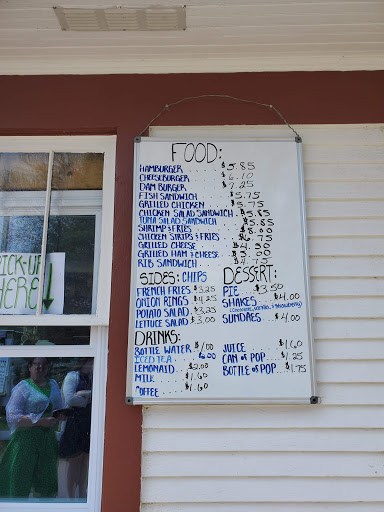 FOOD:
HAMBURGER $5.85
CHEESEBURGER $6.10
DAM BURGER $7.25
FISH SANDWICH $5.75
GRILLED CHICKEN $5.75
CHICKEN SALAD SANDWICH $5.85
TUNA SALAD SANDWICH $5.85
SHRIMP & FRIES $8.00
CHICKEN STRIPS & FRIES $6.75
GRILLED CHEESE $4.50
GRILLED HAM & CHEESE $5.00
RIB SANDWICH $4.75
SIDES: CHIPS
FRENCH FRIES $3.25
ONION RINGS $4.25
POTATO SALAD $3.25
LETTUCE SALAD $3.00
DESSERT:
PIE $3.50
SHAKES $4.00
SUNDAES $4.00
DRINKS:
BOTTLE WATER $1.00
ICED TEA
LEMONAID $2.00
MILK $1.60
OFFEE $1.60
JUICE $1.60
CAN OF POP $1.25
BOTTLE OF POP $1.75
PICK-UP
HERE